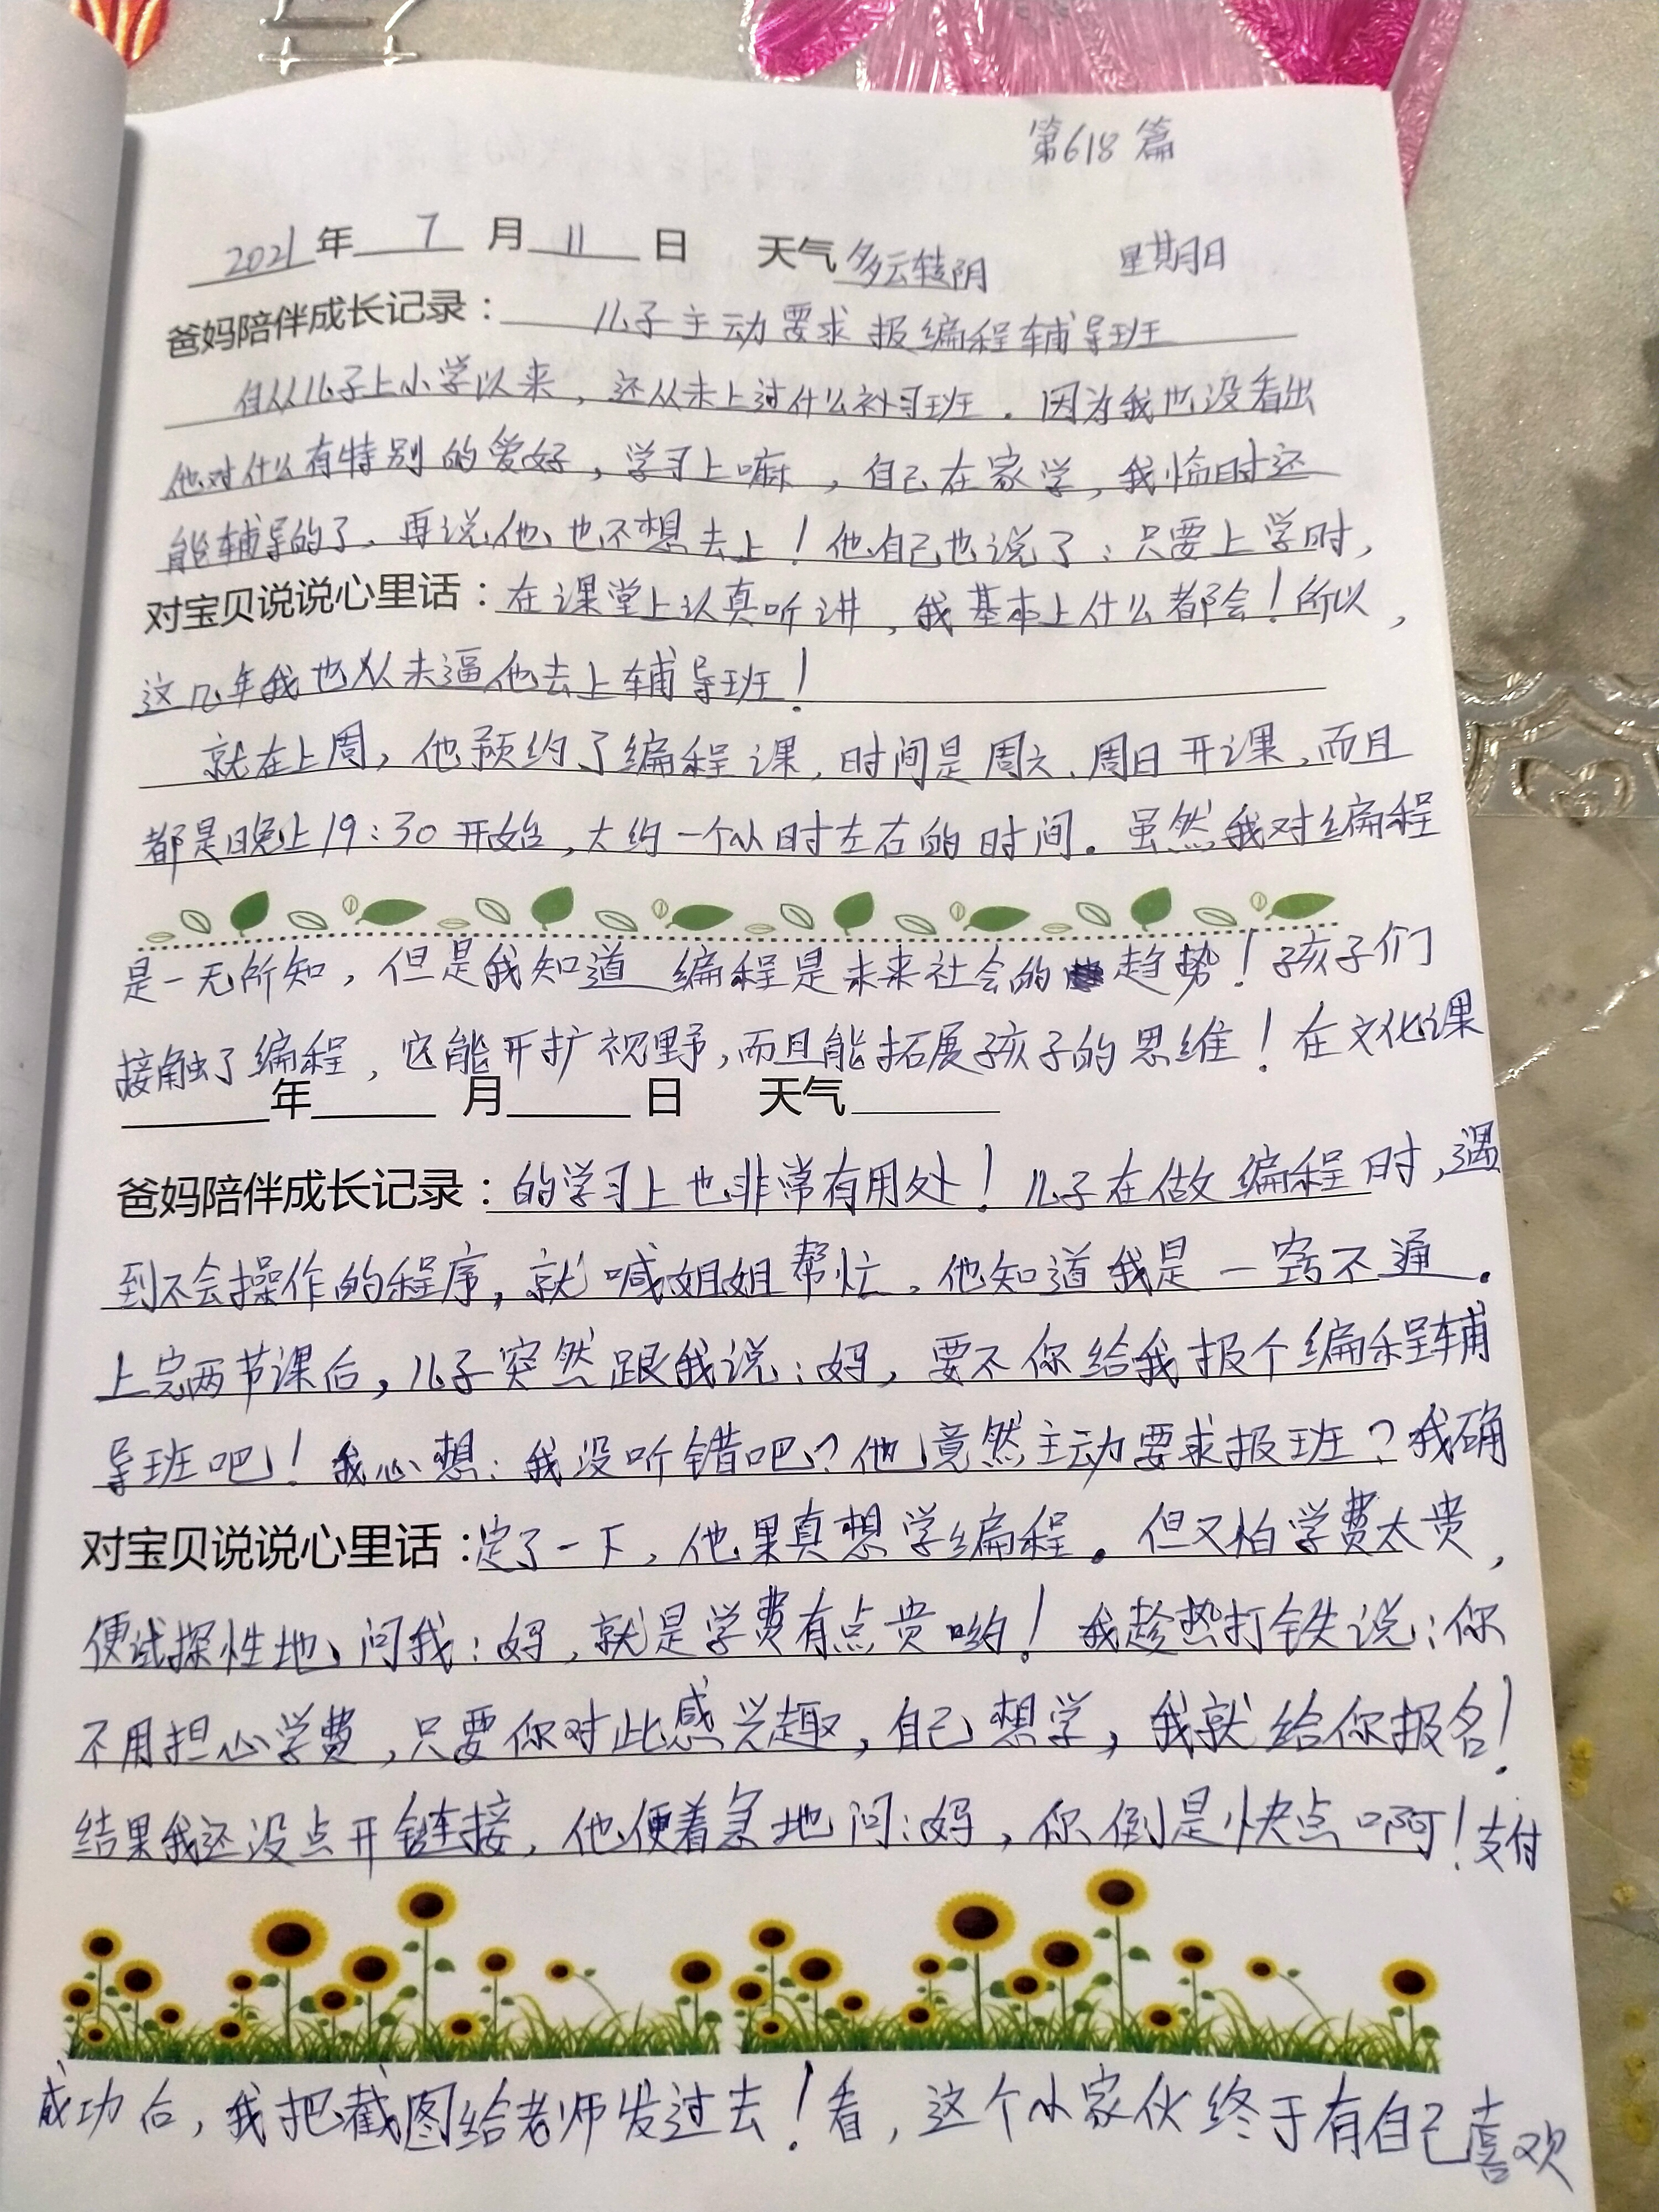 第618篇
2021年 7 月 11 日 天气多云转阴 星期日
爸妈陪伴成长记录：儿子主动要求报编程辅导班
自从儿子上小学以来，还从未上过什么补习班。因为我也没看出
他对什么有特别的爱好，学习上嘛，自己在家学，我临时还
能辅导的了，再说他也不想去上！他自己也说了：只要上学时，
对宝贝说说心里话：在课堂上认真听讲，我基本上什么都会！所以，
这几年我也从未逼他去上辅导班！
就在上周，他预约了编程课，时间是周六、周日开课，而且
都是晚上19:30开始，大约一个小时左右的时间。虽然我对编程
是一无所知，但是我知道编程是未来社会的趋势！孩子们
接触了编程，它能开扩视野，而且能拓展孩子的思维！在文化课
年 月 日 天气
爸妈陪伴成长记录：的学习上也非常有用处！儿子在做编程时，遇
到不会操作的程序，就喊姐姐帮忙，他知道我是一窍不通。
上完两节课后，儿子突然跟我说：妈，要不你给我报个编程辅
导班吧！我心想：我没听错吧？他竟然主动要求报班？我确
对宝贝说说心里话：定了一下，他果真想学编程。但又怕学费太贵，
便试探性地问我：妈，就是学费有点贵哟！我趁热打铁说：你
不用担心学费，只要你对此感兴趣，自己想学，我就给你报名！
结果我还没点开链接，他便着急地问：妈，你倒是快点啊！支付
成功后，我把截图给老师发过去！看，这个小家伙终于有自己喜欢